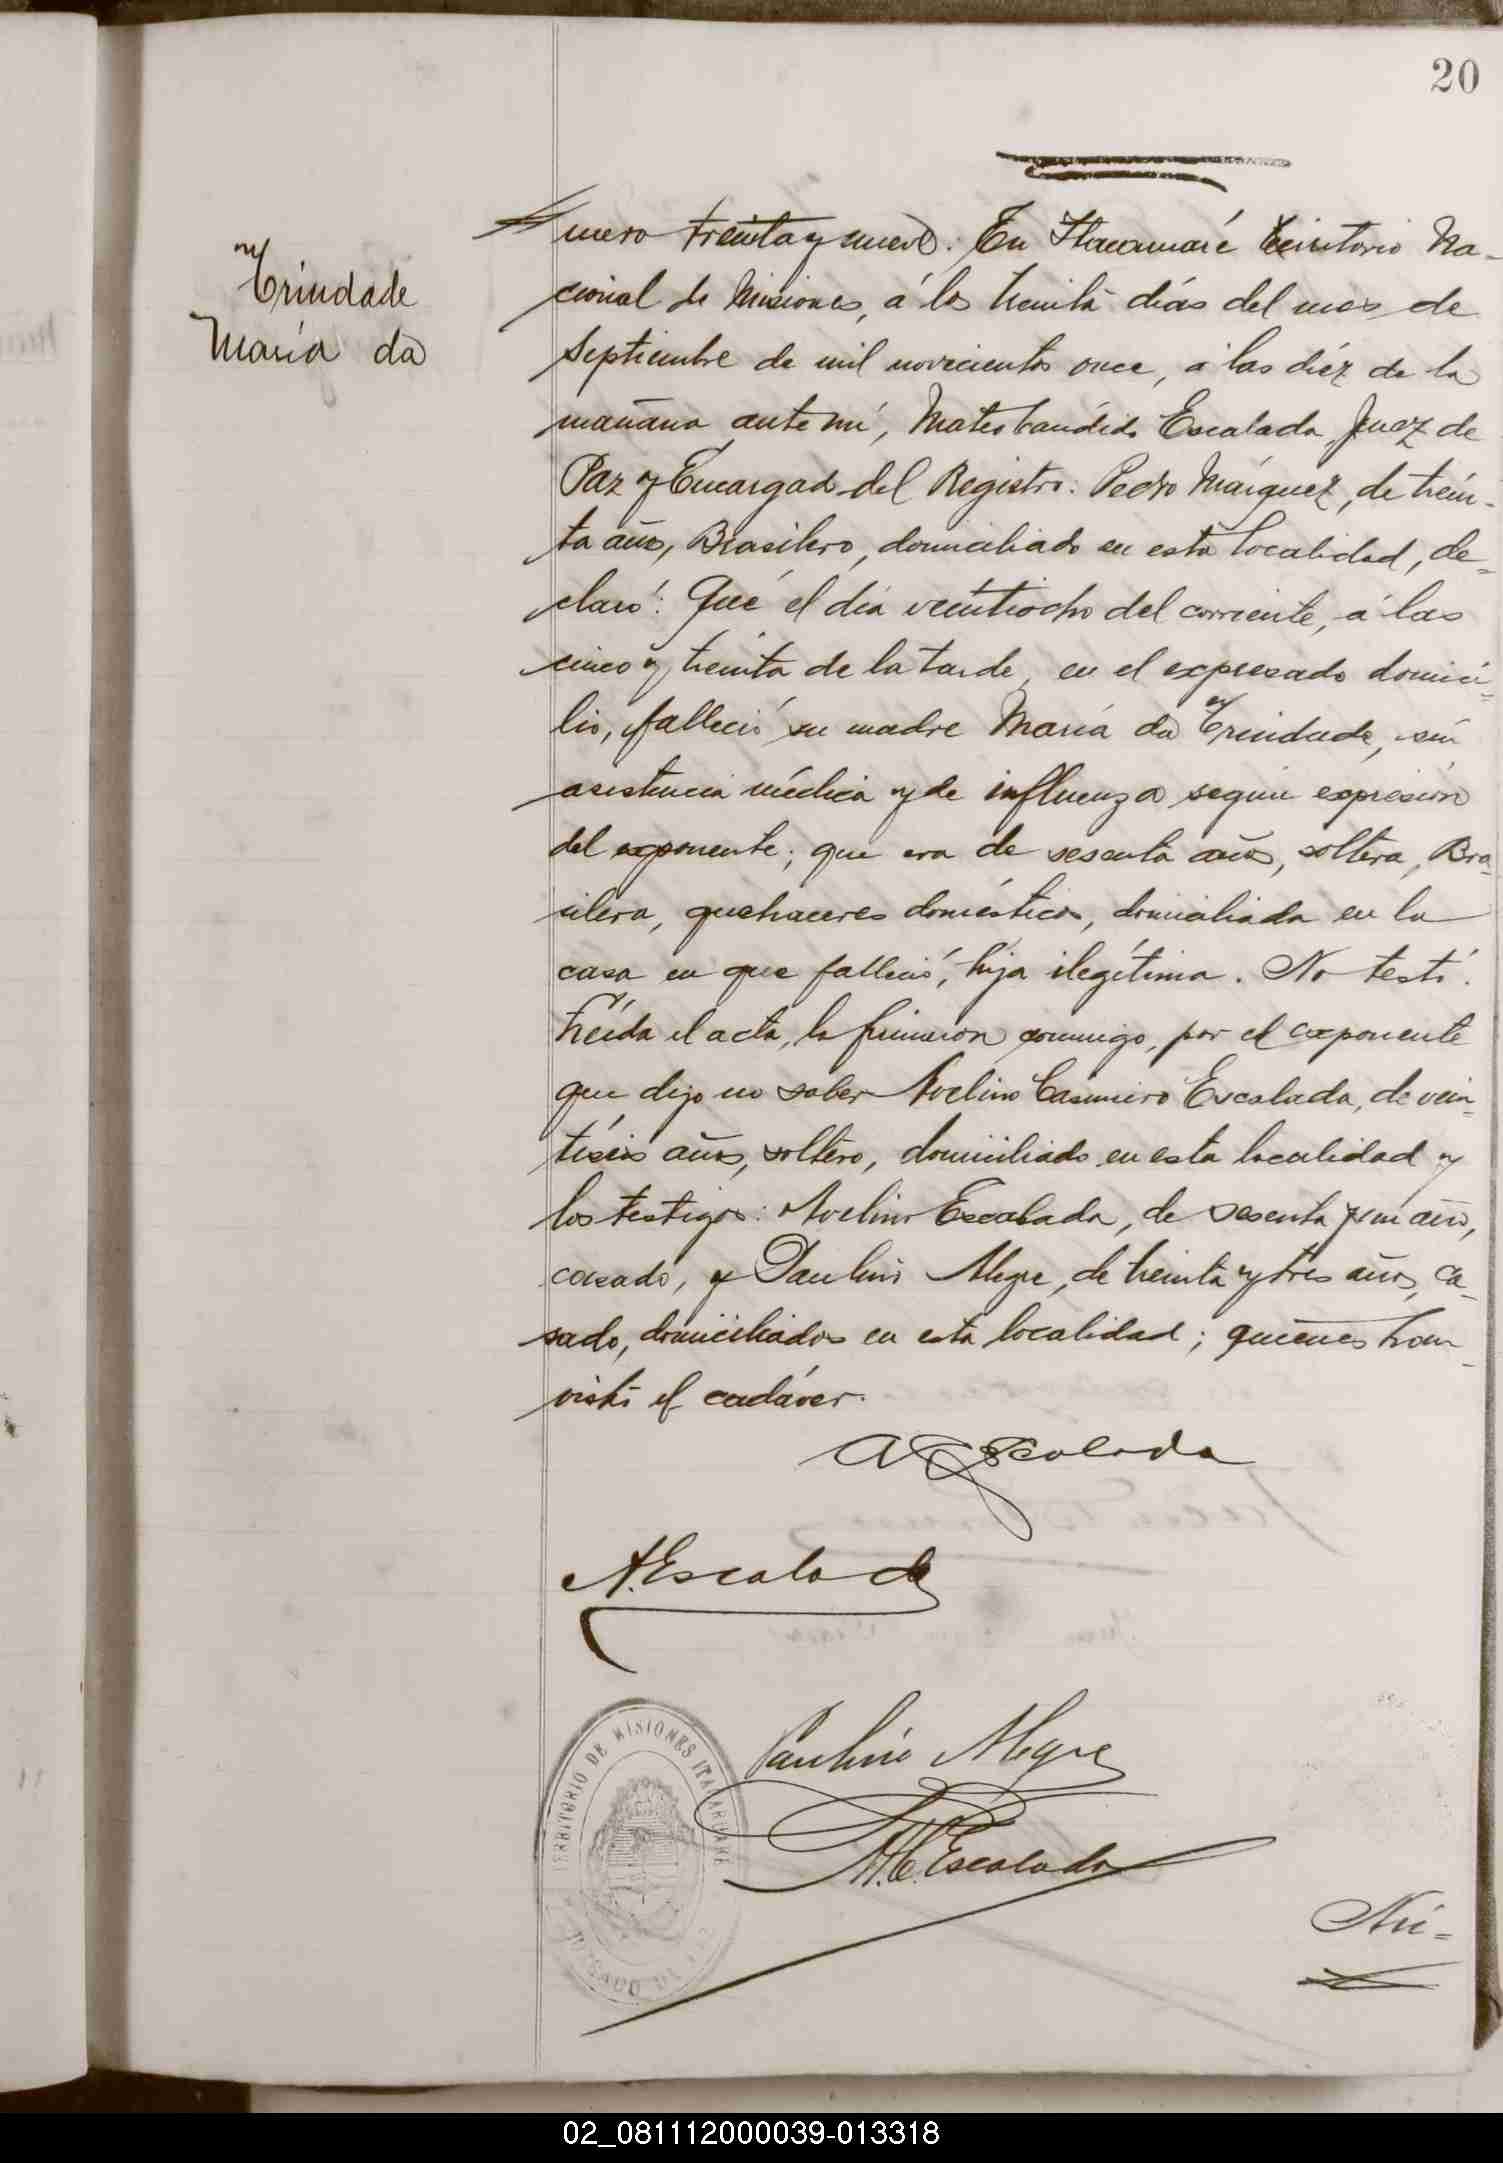 20
Trindade
María da
mero treinta y nueve. En Itacaruaré Territorio Na-
cional de Misiones, á los treinta días del mes de
Septiembre de mil novecientos once, á las diéz de la
mañana ante mí, Mateo Cándido Escalada, Juez de
Paz y Encargado del Registro: Pedro Márquez, de trein-
ta años, Brasilero, domiciliado en esta localidad, de-
claró: Qué el día veintiocho del corriente, á las
cinco y treinta de la tarde, en el expresado domici-
lio, falleció su madre María da Trindade, sin
asistencia médica y de influenza según expresión
del exponente; que era de sesenta años, soltera, Bra-
silera, quehaceres domésticos, domiciliada en la
casa en que falleció, hija ilegítima. No testó.
Leída el acta, la firmaron conmigo, por el exponente
que dijo no saber Avelino Casimiro Escalada, de vein-
tiséis años, soltero, domiciliado en esta localidad y
los testigos: Avelino Escalada, de sesenta y un años,
casado, y Paulino Alegre, de treinta y tres años, ca-
sado, domiciliados en esta localidad; quienes han
visto el cadáver.
A C Escalada
A. Escalada
Paulino Alegre
M. C. Escalada
TERRITORIO DE MISIONES ITACARUARE
JUZGADO DE PAZ
Nú-
02_081112000039-013318